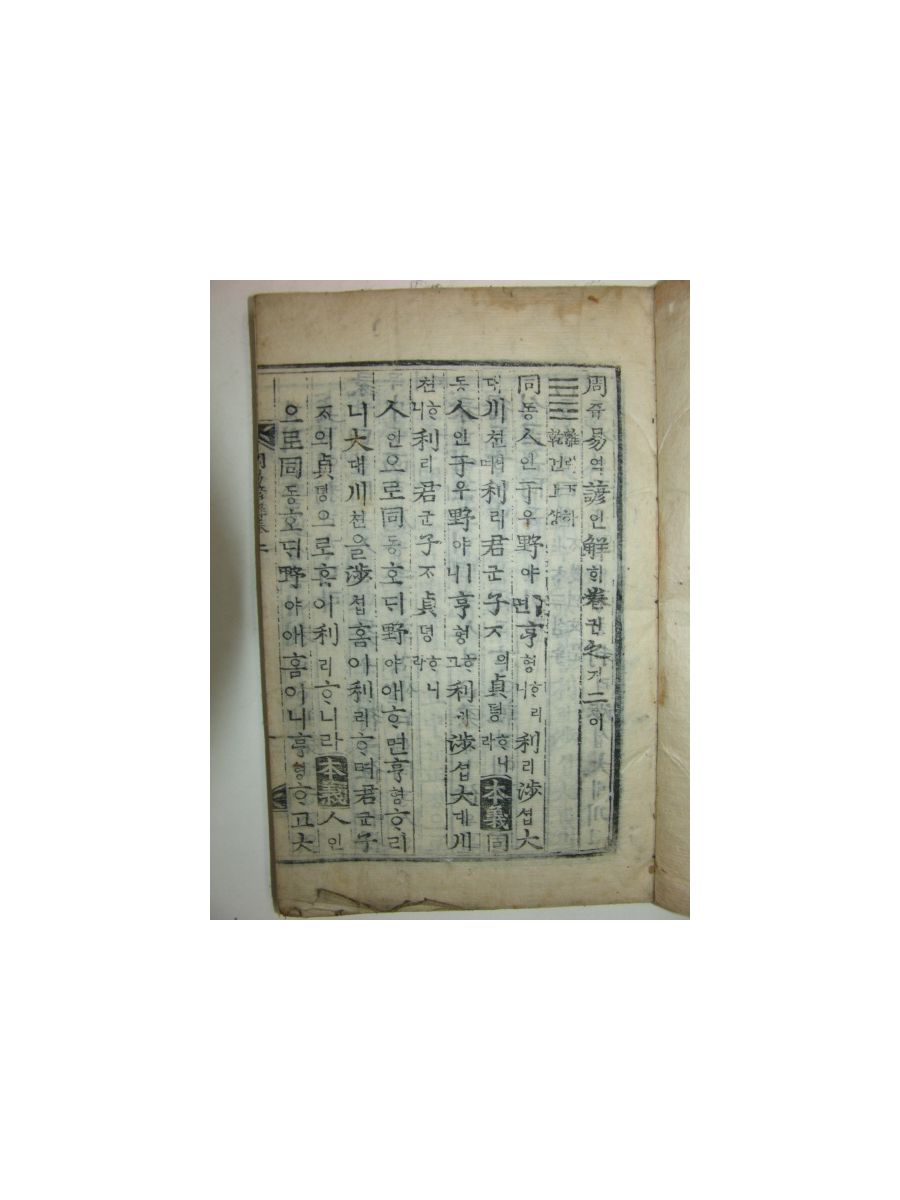 周쥬易역諺언解ᄒᆡ卷권之지二이
離리下하乾건上샹
同동人인于우野야면亨형ᄒᆞ리니利리涉셥大
대川천며利리君군子ᄌᆞ의貞뎡ᄒᆞ니라本義同
동人인于우野야ㅣ니亨형ᄒᆞ고利리涉셥大대川
천ᄒᆞ니利리君군子ᄌᆞ貞뎡ᄒᆞ니라
人인으로同동호ᄃᆡ野야애ᄒᆞ면亨형ᄒᆞ리
니大대川천을涉셥홈이利리ᄒᆞ며君군子
ᄌᆞ의貞뎡으로홈이利리ᄒᆞ니라本義人인
으로同동호ᄃᆡ野야애홈이니亨형ᄒᆞ고大